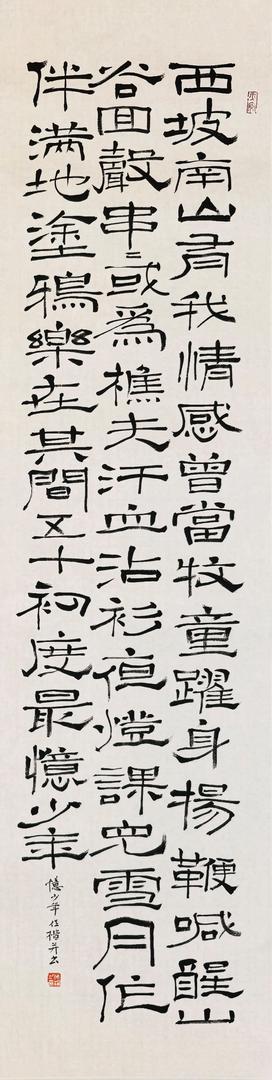 西坡南山有我情感曾當牧童躍身揚鞭喊醒山
谷回聲串〻或爲樵夫汗血沾衫夜燈課兒雪月作
伴滿地塗鴉樂在其間五十初度最憶少年
憶少年 任楷并書